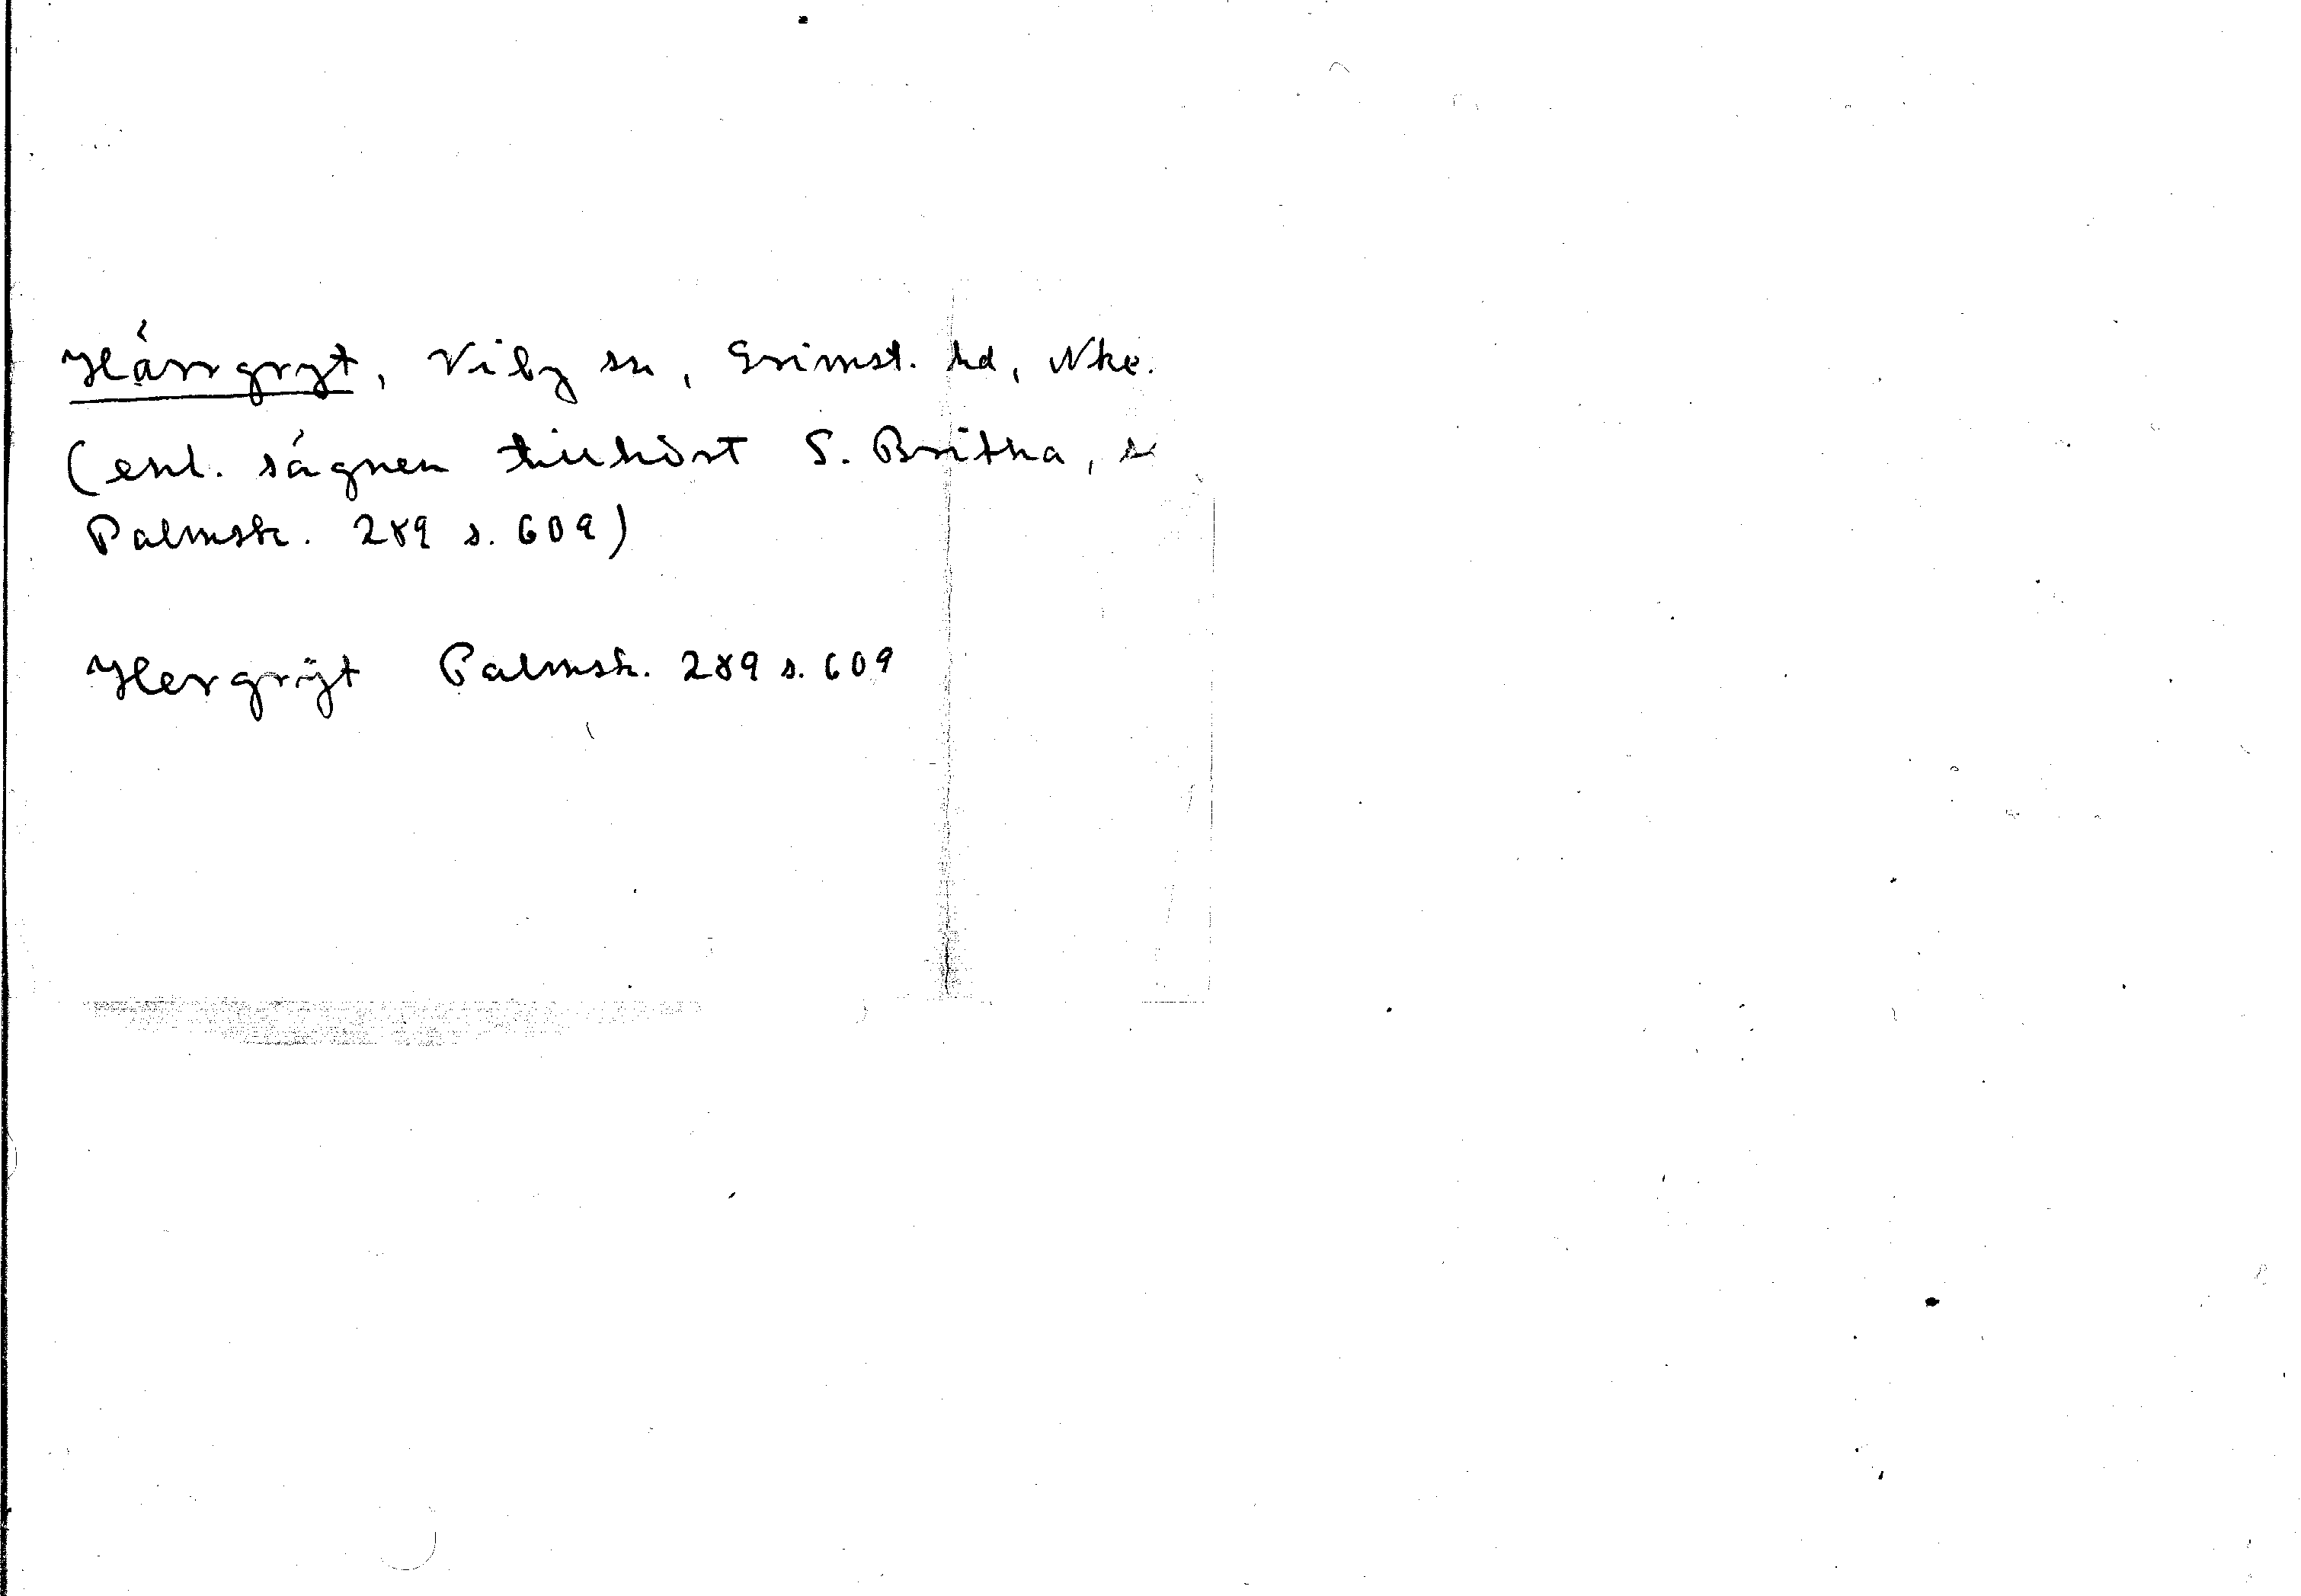 Härrgryt, Viby sn, Grimst. hd, Nke.
(enl. sägnen tillhört S. Britha, se
Palmsk. 289 s. 609)
Hergrÿt Palmsk. 289 s. 609